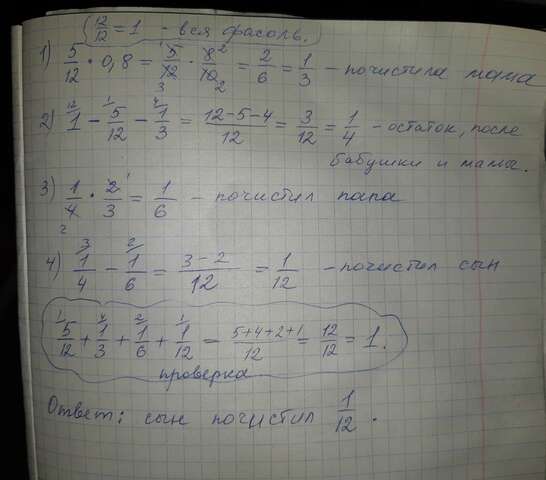 (12/12 = 1 - вся фасоль.)
1) 5/12 · 0,8 = 5/12 · 8/10 = 2/6 = 1/3 - почистила мама
2) 1 - 5/12 - 1/3 = 12-5-4/12 = 3/12 = 1/4 - остаток, после
бабушки и мамы.
3) 1/4 · 2/3 = 1/6 - почистил папа
4) 1/4 - 1/6 = 3-2/12 = 1/12 - почистил сын
5/12 + 1/3 + 1/6 + 1/12 = 5+4+2+1/12 = 12/12 = 1.
проверка
Ответ: сын почистил 1/12.